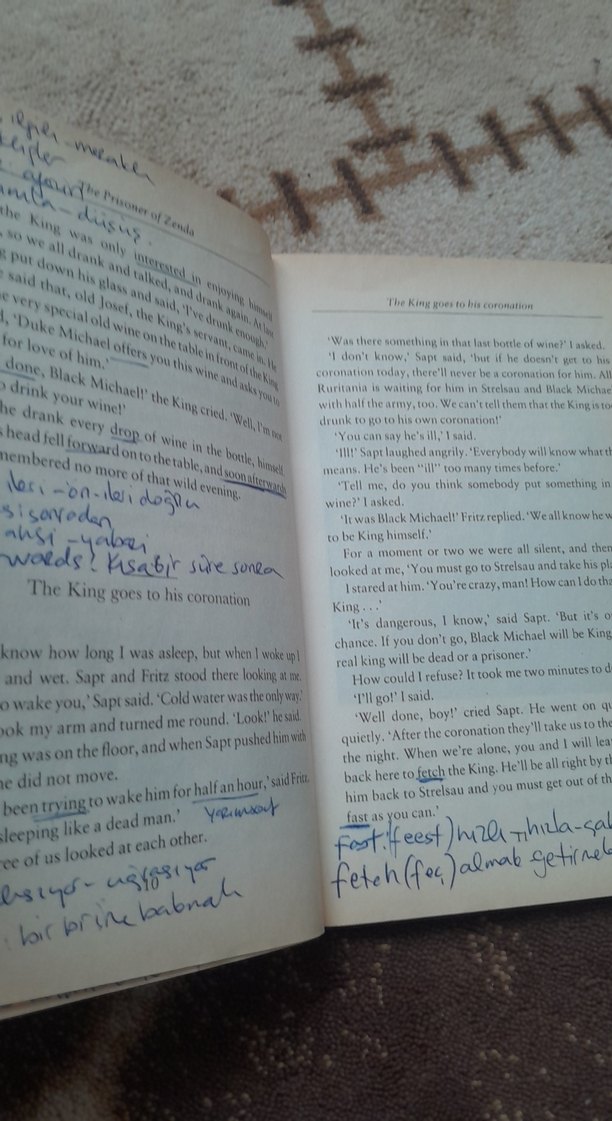 ilgili-meraklı
The Prisoner of Zenda
the King was only interested in enjoying himself
so we all drank and talked, and drank again. At last
put down his glass and said, 'I've drunk enough.'
said that, old Josef, the King's servant, came in. He
very special old wine on the table in front of the King
'Duke Michael offers you this wine and asks you to
for love of him.'
done, Black Michael!' the King cried. 'Well, I'm not
drink your wine!'
he drank every drop of wine in the bottle, himself.
head fell forward on to the table, and soon afterwards
remembered no more of that wild evening.
ileri-ön-ileri doğru
vahşi-yabani
words! kısa bir süre sonra
The King goes to his coronation
know how long I was asleep, but when I woke up I
and wet. Sapt and Fritz stood there looking at me.
to wake you,' Sapt said. 'Cold water was the only way.'
took my arm and turned me round. 'Look!' he said.
was on the floor, and when Sapt pushed him with
he did not move.
been trying to wake him for half an hour,' said Fritz.
sleeping like a dead man.'
Yarım saat
of us looked at each other.
uğraşıyor
10
bir birine bakmak
The King goes to his coronation
'Was there something in that last bottle of wine?' I asked.
'I don't know,' Sapt said, 'but if he doesn't get to his
coronation today, there'll never be a coronation for him. All
Ruritania is waiting for him in Strelsau and Black Michael
with half the army, too. We can't tell them that the King is too
drunk to go to his own coronation!'
'You can say he's ill,' I said.
'Ill!' Sapt laughed angrily. 'Everybody will know what
means. He's been "ill" too many times before.'
'Tell me, do you think somebody put something in
wine?' I asked.
'It was Black Michael!' Fritz replied. 'We all know he
to be King himself.'
For a moment or two we were all silent, and then
looked at me, 'You must go to Strelsau and take his
I stared at him. 'You're crazy, man! How can I do
King . . .'
'It's dangerous, I know,' said Sapt. 'But it's
chance. If you don't go, Black Michael will be King
real king will be dead or a prisoner.'
How could I refuse? It took me two minutes to
'I'll go!' I said.
'Well done, boy!' cried Sapt. He went on
quietly. 'After the coronation they'll take us to the
the night. When we're alone, you and I will
back here to fetch the King. He'll be all right by
him back to Strelsau and you must get out of
fast as you can.'
fast (feest) hızlı-hızla
fetch (feç) almak getirmek